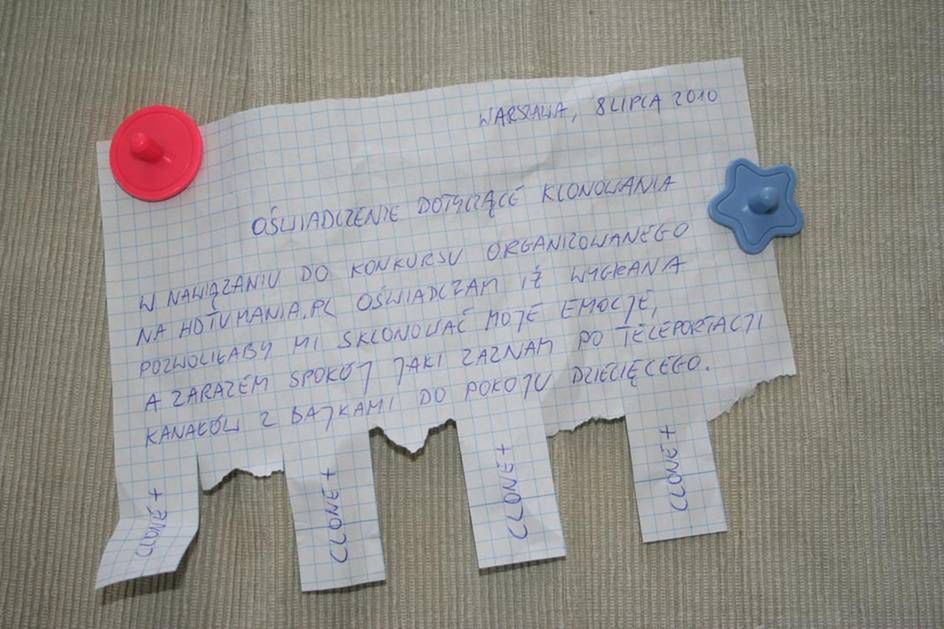 WARSZAWA, 8 LIPCA 2010
OŚWIADCZENIE DOTYCZĄCE KLONOWANIA
W NAWIĄZANIU DO KONKURSU ORGANIZOWANEGO
NA HDTVMANIA.PL OŚWIADCZAM IŻ WYGRANA
POZWOLIŁABY MI SKLONOWAĆ MOJE EMOCJE,
A ZARAZEM SPOKÓJ JAKI ZAZNAM PO TELEPORTACJI
KANAŁÓW Z BAJKAMI DO POKOJU DZIECIĘCEGO.
CLONE+
CLONE+
CLONE+
CLONE+